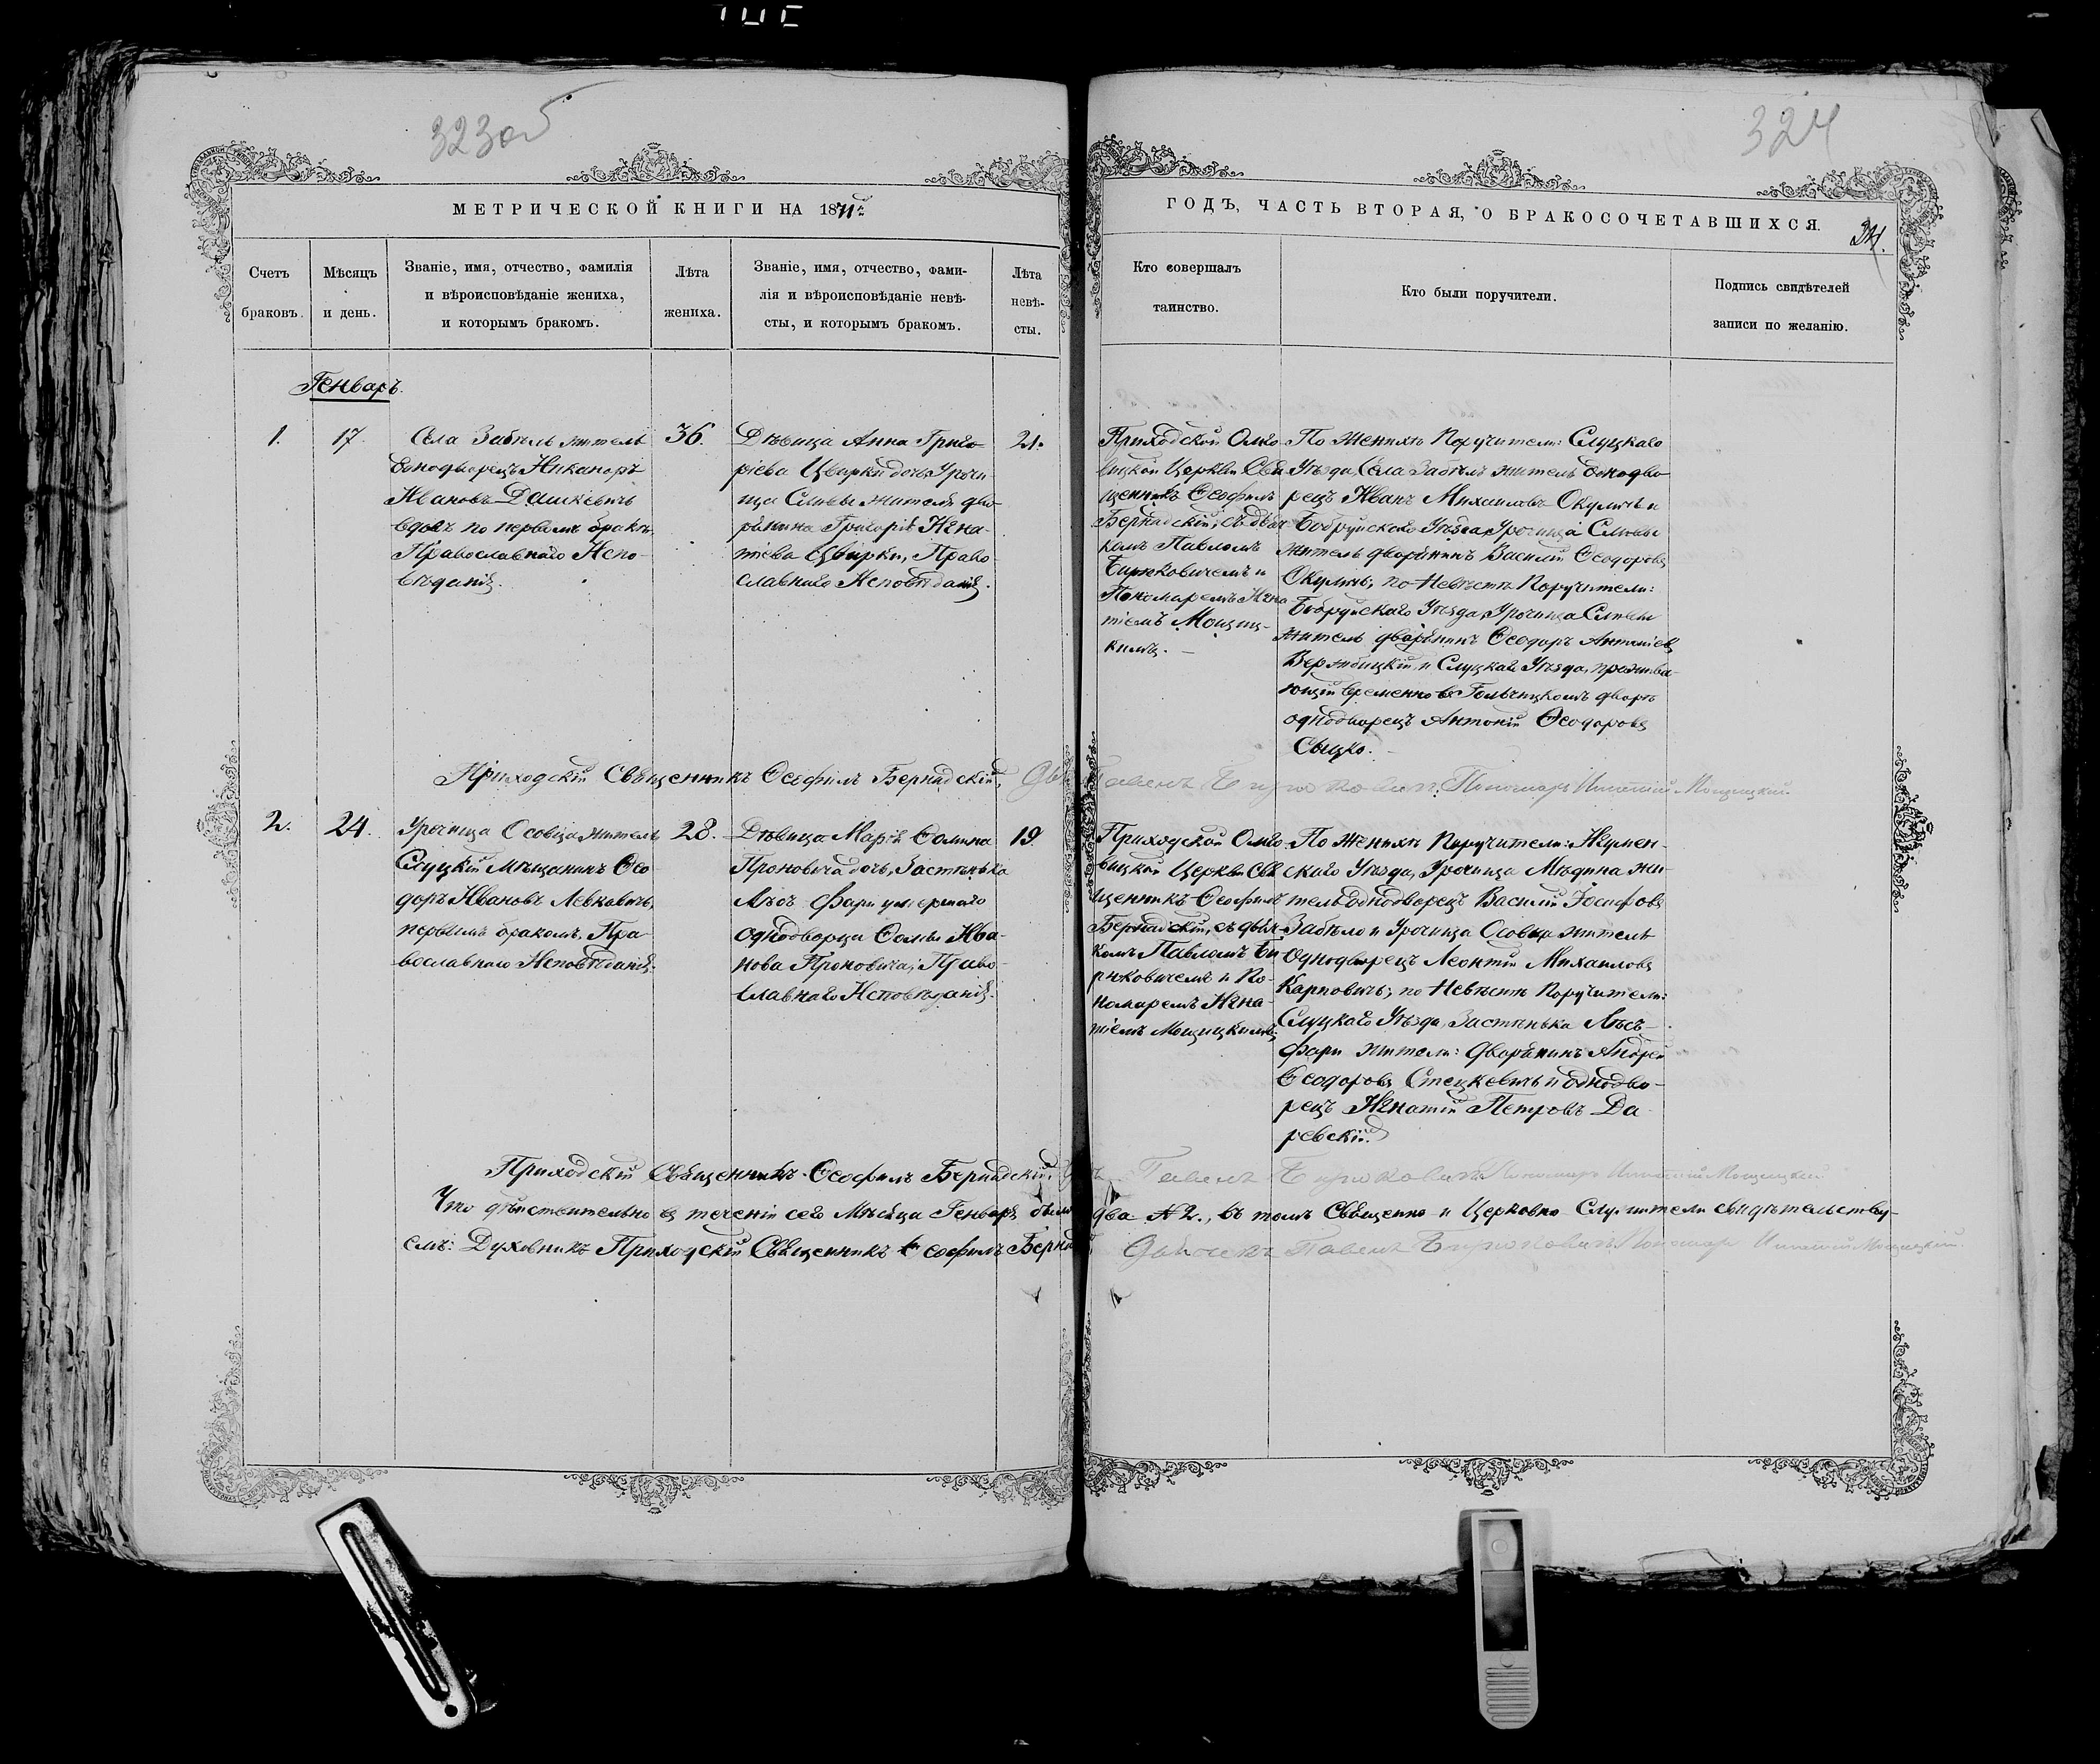 323об
324
МЕТРИЧЕСКОЙ КНИГИ НА 1871г
ГОДЪ, ЧАСТЬ ВТОРАЯ, О БРАКОСОЧЕТАВШИХСЯ.
34.
Счетъ
браковъ.
Мѣсяцъ
и день.
Званіе, имя, отчество, фамилія
и вѣроисповѣданіе жениха,
и которымъ бракомъ.
Лѣта
жениха.
Званіе, имя, отчество, фами-
лія и вѣроисповѣданіе невѣ-
сты, и которымъ бракомъ.
Лѣта
невѣ-
сты.
Кто совершалъ
таинство.
Кто были поручители.
Подпись свидѣтелей
записи по желанію.
Генваръ.
1.
17.
Села Забѣлъ житель
Однодворецъ Никаноръ
Ивановъ Дашкевичъ
вдовъ по первомъ бракѣ
Православнаго Испо-
вѣданія.
36.
Дѣвица Анна Григо-
ріева Цвирки дочь, Урочи
ща Сливы жителя дво
рянина Григорія Игна-
тіева Цвирки, Право
славнаго Исповѣданія.
21.
Приходской Омго-
вицкой Церкви Свя
щенникъ Ѳеофилъ
Бернадскій, съ дьяч
комъ Павломъ
Бирюковичемъ и
Пономаремъ Игна-
тіемъ Мощиц-
кимъ. —
По Женихѣ Поручители: Слуцкаго
Уѣзда, Села Забѣлъ житель Однодво-
рецъ Иванъ Михаиловъ Окуличъ и
Бобруйскаго Уѣзда, Урочища Сливы
житель дворянинъ Василій Ѳеодоровъ
Окуличъ; по Невѣстѣ Поручители:
Бобруйскаго Уѣзда, Урочища Сливы
житель дворянинъ Ѳеодоръ Антоніевъ
Вержбицкій, и Слуцкаго Уѣзда, прожива-
ющій временно въ Гольчицкомъ дворѣ
однодворецъ Антоній Ѳеодоровъ
Сыцко.
Приходскій Священникъ Ѳеофилъ Бернадскій, Павелъ Бирюковичъ. Пономарь Игнатій Мощицкій
2.
24.
Урочища Осовца житель
Слуцкій Мѣщанинъ Ѳео-
доръ Ивановъ Левковичъ,
первымъ бракомъ, Пра-
вославнаго Исповѣданія.
28.
Дѣвица Марія Ѳомина
Проновича дочь, Застѣнька
Лѣсъ-Фари умершаго
однодворца Ѳомы Ива-
нова Проновича, Право-
славнаго Исповѣданія.
19.
Приходской Омго-
вицкой Церкви Свя
щенникъ Ѳеофилъ
Бернадскій, съ дьяч-
комъ Павломъ Би
рюковичемъ и По-
номаремъ Игна-
тіемъ Мощицкимъ.
По Женихѣ Поручители: Игумен-
скаго Уѣзда, Урочища Мѣдина жи-
тель однодворецъ Василій Іосифовъ
Забѣло и Урочища Осовца житель
Однодворецъ Леонтій Михаиловъ
Карповичъ; по Невѣстѣ Поручители:
Слуцкаго Уѣзда, Застѣнька Лѣсъ-
фари жители: дворянинъ Андрей
Ѳеодоровъ Стецкевичъ и однодво-
рецъ Игнатій Петровъ Да-
ревскій.
Приходскій Священникъ Ѳеофилъ Бернадскій. Павелъ Бирюковичъ. Пономарь Игнатій Мощицкій
Что дѣйствительно въ теченіи сего Мѣсяца Генваря было два № 2., въ томъ Священно и Церковно Служители свидѣтельству-
емъ: Духовникъ Приходскій Священникъ Ѳеофилъ Дьячекъ Павелъ Бирюковичъ Пономарь Игнатій Мощицкій